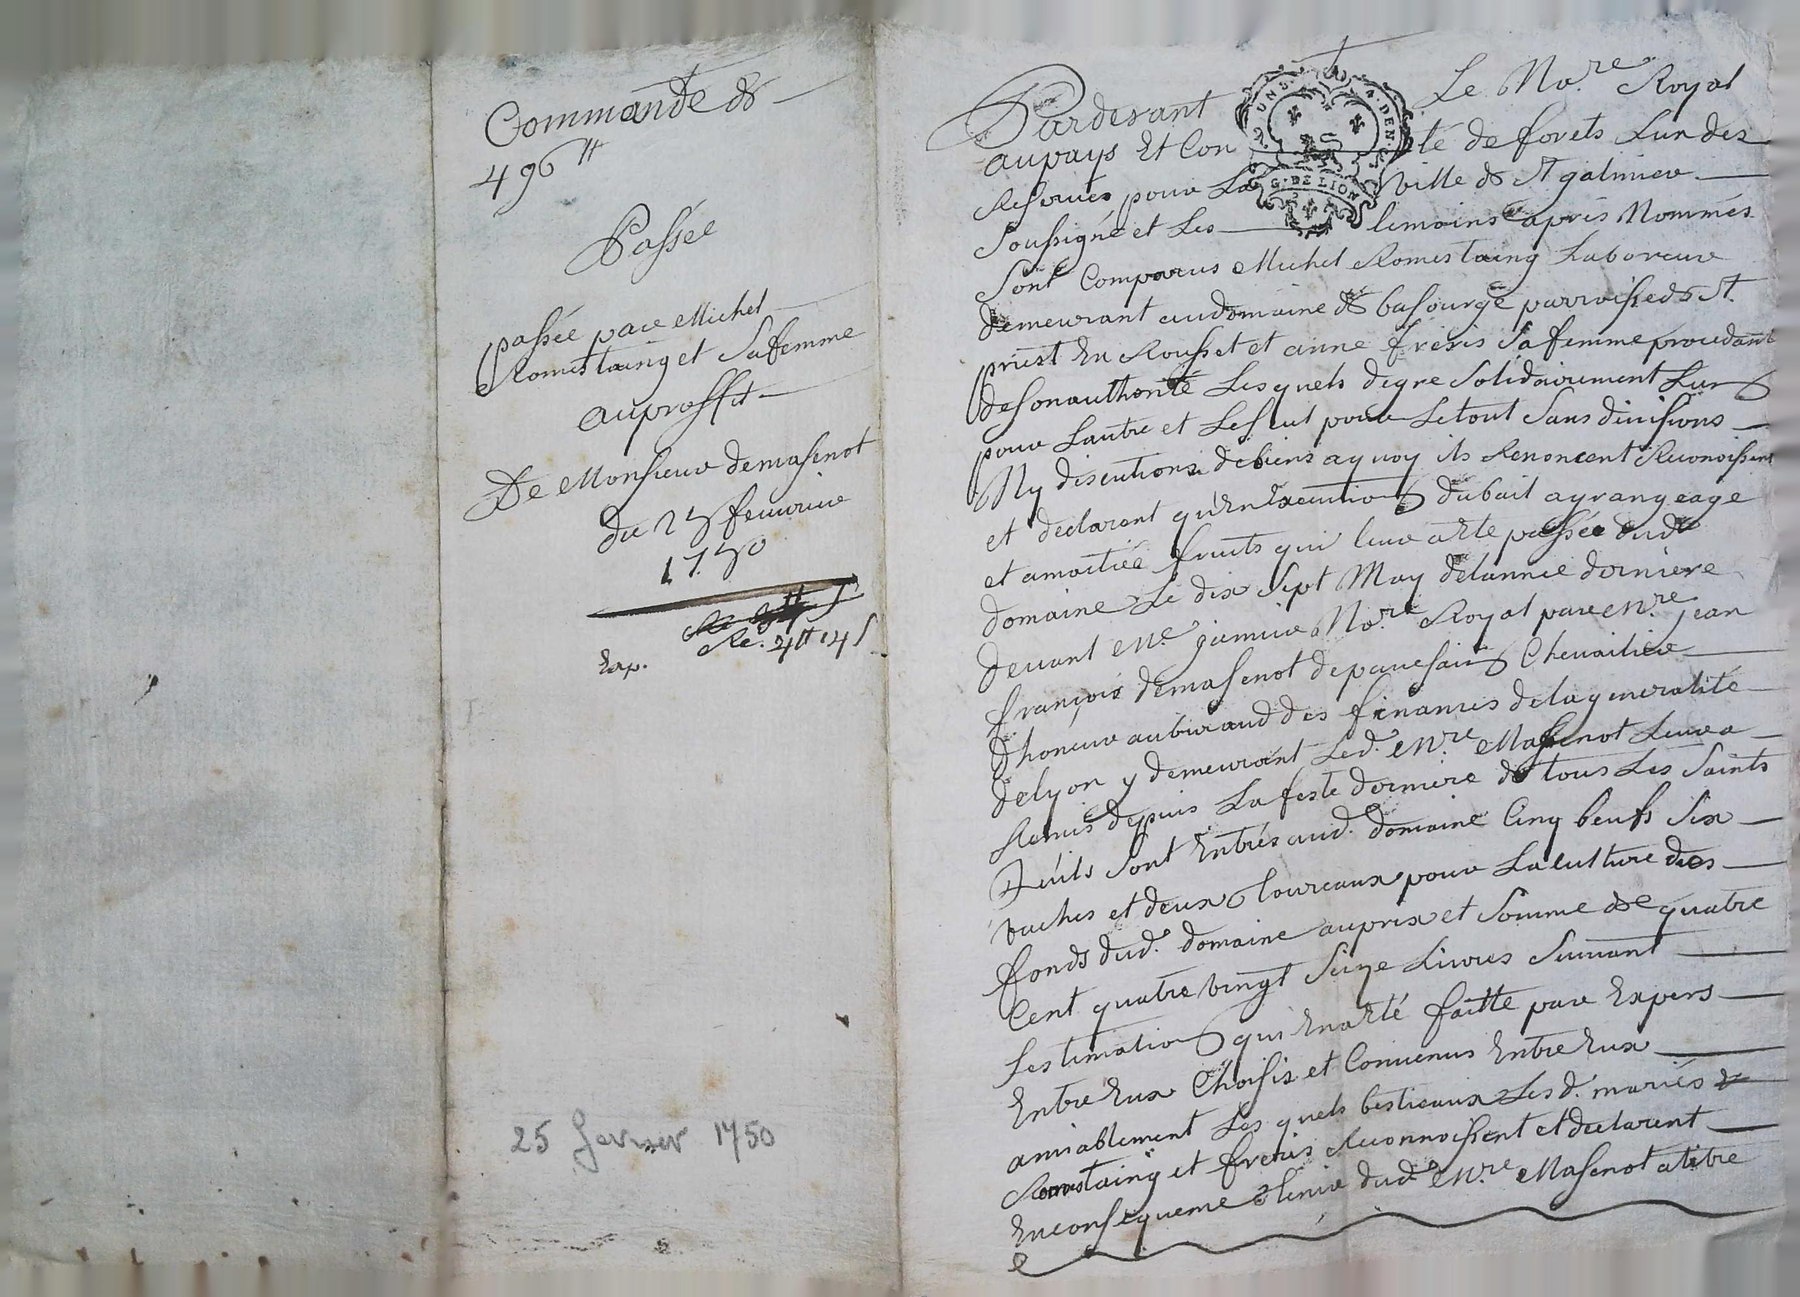 Commande de
496  tt
Passée
passée pare Michel
Romestaing et sa femme
au proffit
De Monsieur demasenot
du 25 feuvrier
1750
Re. 4tt 14 s
Exp.
25 fevrier 1750
Pardevant Le No.re Royal
au pays Et Conté de forets Lun des
Reservés pour La ville de St galmier
Soussigné et Les temoins apres Nommés
Sont Comparus Michel Romestaing Laboreur
demeurant au domaine de basourge parroisse de St.
priest En Rousset et anne freris Sa femme procedant
de son authorité Lesquels de gre Solidairement Lun
pour Lautre et Le seul pour Le tout Sans divisions
Ny discutions de biens a quoy ils Renoncent Reconoissent
et declarent qu'En Execution du bail a grangeage
et a moitiée fruits qui leur a Eté passée dud.
domaine Le dix Sept May de lannée derniere
devant Me. No.re Royal pare Mre. jean
françois demasenot de pavesain Chevailier
dhoneur au buraud des finances de la generalité
de lyon y demeurant Led. Mre. Massenot Leur a
Remis depuis La feste derniere de tous Les Saints
quils Sont Entrés aud. domaine Cinq beufs Six
vaches et deux toureaux pour La culture des
fonds dud. domaine au prix et Somme de quatre
Cent quatre vingt Seize Livres Suivant
Lestimation qui En a Eté faitte pare Expers
Entre Eux Choisis et Convenus Entre Eux
amiablement Les quels bestieaux Les d. mariés
Romestaing et freris Reconnoissent et declarent
En consequeme tenir dud. Mre. Masenot a titre